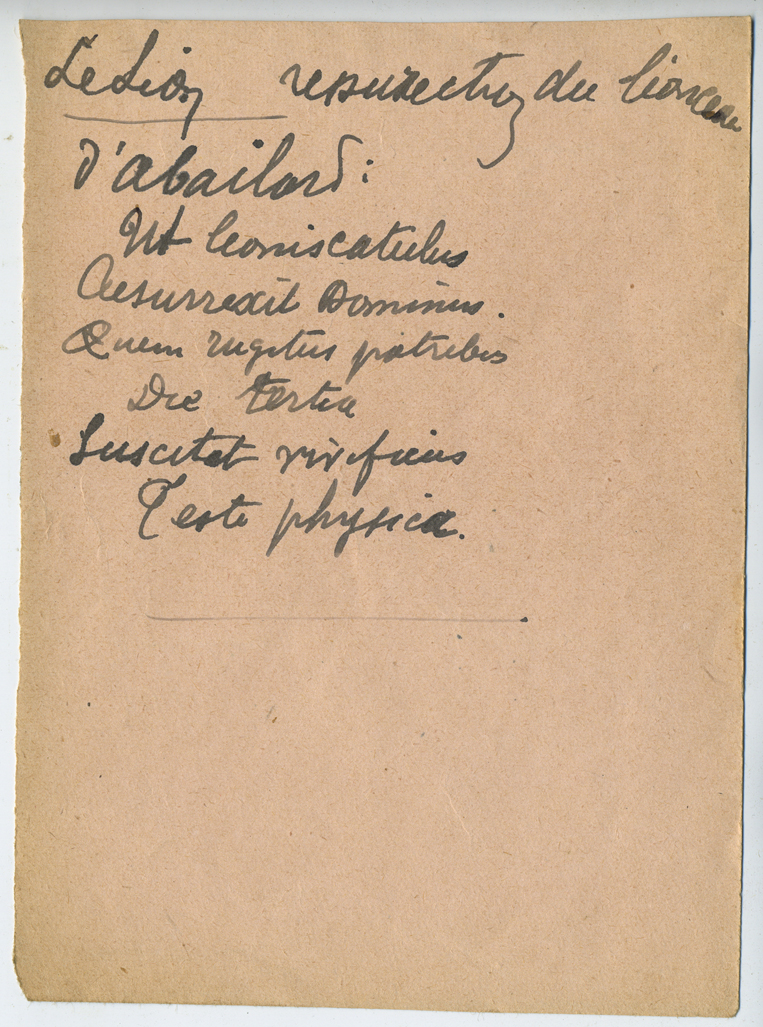 Le Lion resurection du lionceau
D'abailard :
Ut leonis catulus
Resurrexit Dominus.
Quem rugitus patribus
Die tertia
Suscitat vivificus
Teste physica.